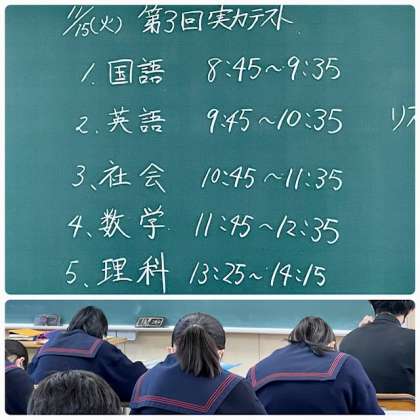 11/15(火) 第3回実力テスト
1. 国語 8:45～9:35
2. 英語 9:45～10:35
リス
3、社会 10:45～11:35
4、数学 11:45～12:35
5、理科 13:25～14:15